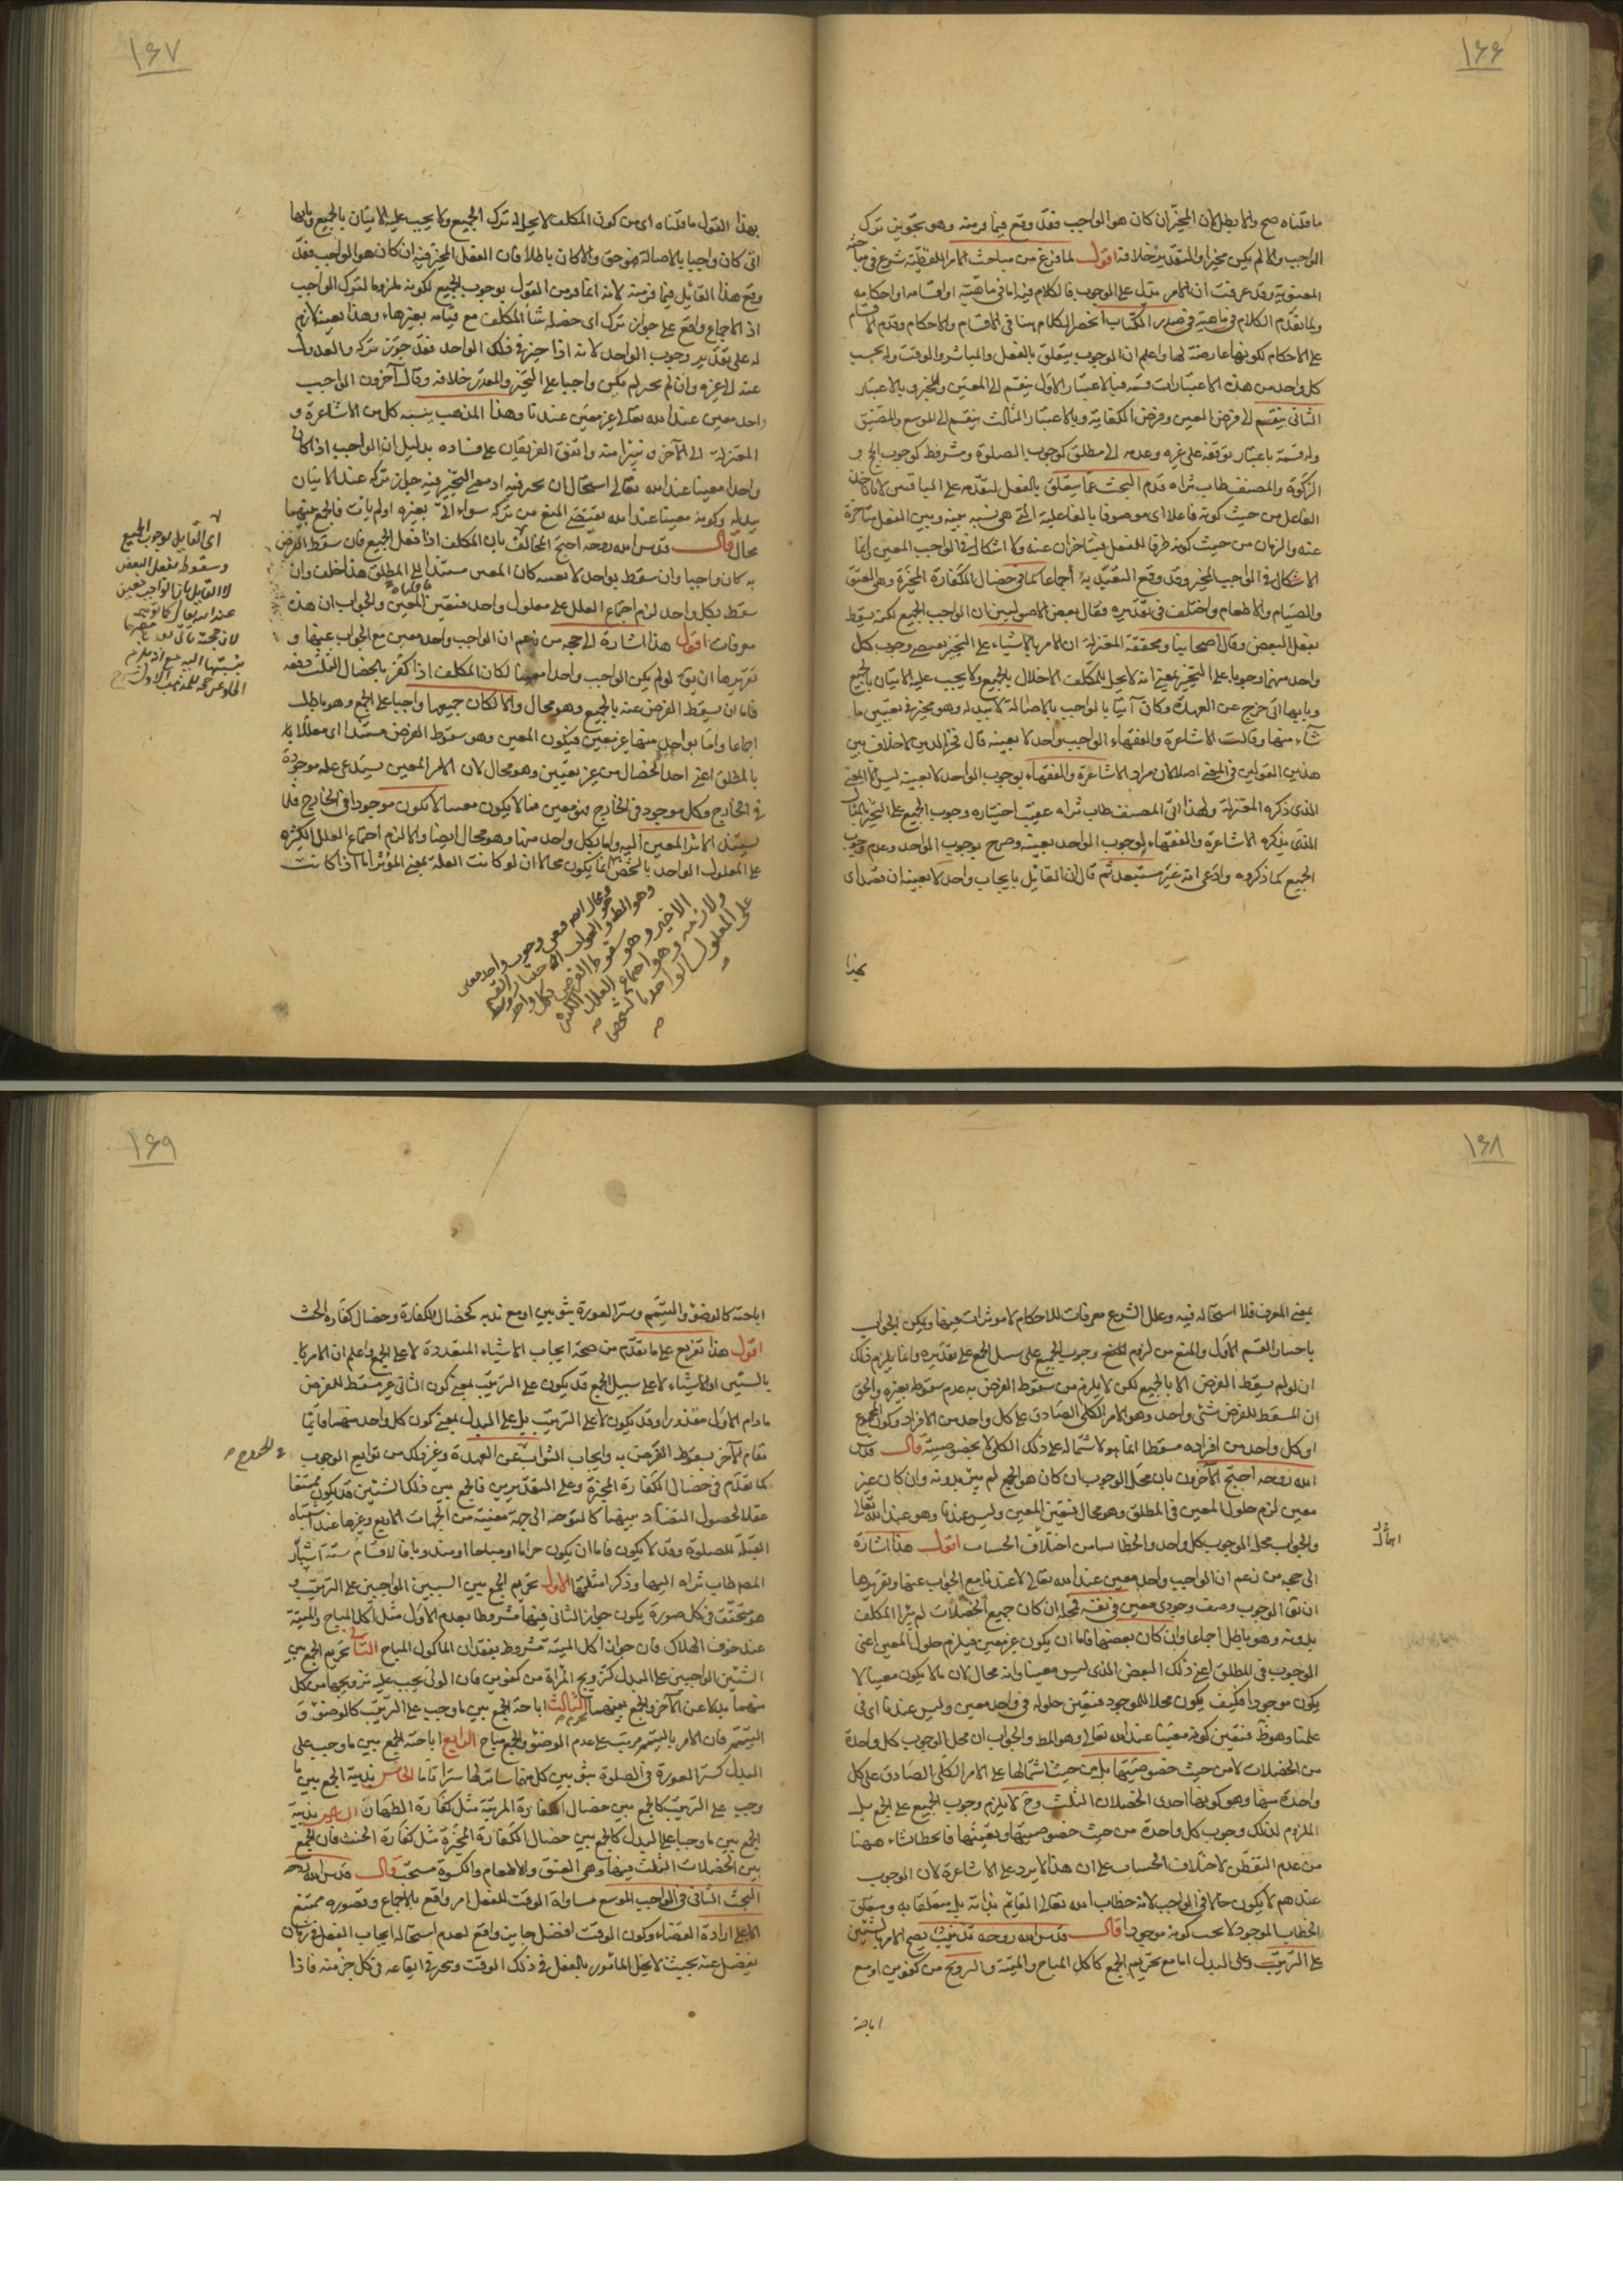 ١۶۶
ما قلناه صح والا بطل لان المخيّر ان كان هو الواجب فقد وقع فيما فرّ منه وهو تجويز ترك
الواجب والا لم يكن مخيرا والمتقدير خلافه اقول لما فرغ من مباحث الامر اللفظية شرع في مباحثه
المعنوية وقد عرفت ان الامر يدل على الوجوب فالكلام فيه اما في ماهيته او اقسامه او احكامه
ولما تقدم الكلام في ماهيته في صدر الكتاب انحصر الكلام هنا في الاقسام والاحكام وقدم الاقسام
على الاحكام لكونها عارضة لها واعلم ان الوجوب يتعلق بالفعل والمباشر والوقت وله بحسب
كل واحد من هذه الاعتبارات قسمة فبالاعتبار الاول ينقسم الى المعين والمخير وبالاعتبار
الثاني ينقسم الى فرض العين وفرض الكفاية وبالاعتبار الثالث ينقسم الى الموسع والمضيق
وله قسمة باعتبار توقفه على غيره وعدمه الى مطلق كوجوب الصلوة ومشروط كوجوب الحج و
الزكوة والمصنف طاب ثراه قدم البحث عما يتعلق بالفعل لتقدمه على الباقين لان
الفاعل من حيث كونه فاعلا اى موصوفا بالفاعلية التي هي نسبة بينه وبين الفعل متاخرة
عنه والزمان من حيث كونه ظرفا للفعل يتاخر ان عنه ولا اشكال في الواجب المعين انما
الاشكال في الواجب المخير وقد وقع التعبد به اجماعا كما في خصال الكفارة المخيرة وهي العتق
والصيام والاطعام واختلف في تقديره فقال بعض الاصوليين ان الواجب الجميع لكنه يسقط
بفعل البعض وقال اصحابنا ومحققة المعتزلة ان الامر بالاشياء على التخيير يقتضي وجوب كل
واحد منهما وجوبا على التخيير بمعنى انه لا يحل للمكلف الاخلال بالجميع ولا يجب عليه الاتيان بالجميع
وبايها اتى خرج عن العهدة وكان آتيا بالواجب بالاصالة لا ببدله وهو مخير في تعيين ما
شاء منها وقالت الاشاعرة والفقهاء الواجب واحد لا بعينه قال فخر الدين لا خلاف بين
هذين القولين في المعنى اصلا لان مراد الاشاعرة والفقهاء بوجوب الواحد لا بعينه ليس الا المعنى
الذي ذكره المعتزلة ولهذا اتى المصنف طاب ثراه عقيب اختياره وجوب الجميع على التخيير بالمثال
الذي يذكره الاشاعرة والفقهاء لوجوب الواحد بعينه وصرح بوجوب الواحد وعدم وجوب
الجميع كما ذكروه وادعى انه غير مستبعد ثم قال ان القائل بايجاب واحد لا بعينه ان قصد اى
بهذا
١۶٧
بهذا القول ما قلناه اى من كون المكلف لا يحل له ترك الجميع ولا يجب عليه الاتيان بالجميع وبايها
اتى كان واجبا بالاصالة فهو حق والا كان باطلا فان الفعل المخير فيه ان كان هو الواجب فقد
وقع هذا القائل فيما فر منه لانه انما فر من القول بوجوب الجميع لكونه ملزوما لترك الواجب
اذ الاجماع واقع على جواز ترك اى خصلة شاء المكلف مع قيامه بغيرها وهذا بعينه لازم
له على تقدير وجوب الواحد لانه اذا خير في ذلك الواحد فقد جوز تركه والعدول
عنه الى غيره وان لم يخير لم يكن واجبا على التخيير والتقدير خلافه وقال آخرون الواجب
واحد معين عند الله تعالى غير معين عندنا وهذا المذهب ينسبه كل من الاشاعرة و
المعتزلة الى الآخر ويتبرأ منه واتفق الفريقان على فساده بدليل ان الواجب اذا كان
واحدا معينا عند الله تعالى استحال ان يخير فيه اذ معنى التخيير فيه جواز تركه عند الاتيان
ببدله وكونه معينا عند الله يقتضي المنع من تركه سواء اتى بغيره او لم يات فالجمع بينهما
محال قال قدس الله روحه احتج المخالف بان المكلف اذا فعل الجميع فان سقط الفرض
به كان واجبا وان سقط بواحد لا بعينه كان المعين مستندا الى المطلق هذا خلف وان
سقط بكل واحد لزم اجتماع العلل على معلول واحد فتعين المعين والجواب ان هذه
معرفات اقول هذا اشارة الى حجة من زعم ان الواجب واحد معين مع الجواب عنها و
تقريرها ان يق لو لم يكن الواجب واحدا معينا لكان المكلف اذا كفر بالخصال الثلث دفعة
فاما ان يسقط الفرض عنه بالجميع وهو محال والا لكان جميعها واجبا على الجمع وهو باطل
اجماعا واما بواحد منها غير معين فيكون المعين وهو سقوط الفرض مستندا اى معللا
بالمطلق اعني احد الخصال من غير تعيين وهو محال لان الامر المعين يستدعى علة موجودة
في الخارج وكل موجود في الخارج فهو معين فما لا يكون معينا لا يكون موجودا في الخارج فلا
يستند الاثر المعين اليه واما بكل واحد منها وهو محال ايضا والا لزم اجتماع العلل الكثيرة
على المعلول الواحد بالشخص انما يكون محالا ان لو كانت العلة بمعنى المؤثر اما اذا كانت
اى القايل بوجوب الجميع
وسقوط بفعل البعض
لا القايل بان الواجب معين
عند الله تعالى كما توهم
وهو المطلوب
الاخير وهو سقوط الفرض بكل واحد
ولازمه وهو اجتماع العلل الكثيرة
على المعلول الواحد بالشخص
١۶٨
بمعنى المعرف فلا استحالة فيه وعلل الشرع معرفات للاحكام لا مؤثرات فيها ويمكن الجواب
باختيار القسم الاول والمنع من لزوم وجوب الجميع على سبيل الجمع على تقديره وانما يلزم ذلك
ان لو لم يسقط الفرض الا بالجميع لكن لا يلزم من سقوط الفرض به عدم سقوطه بغيره والحق
ان المسقط للفرض شئ واحد وهو الامر الكلي الصادق على كل واحد من الافراد وكون المجموع
او كل واحد من افراده مسقطا انما هو لاشتماله على ذلك الكلي لا بخصوصيته قال قدس
الله روحه احتج الآخرون بان محل الوجوب ان كان هو الجميع لم يبرأ بدونه وان كان غير
معين لزم حلول المعين في المطلق وهو محال فتعين المعين وليس عندنا وهو عند الله تعالى
والجواب محل الوجوب كل واحد والخطأ نشأ من اختلاف الحساب اقول هذا اشارة
الى حجة من زعم ان الواجب واحد معين عند الله تعالى لا عندنا مع الجواب عنها وتقريرها
ان يق الوجوب وصف وجودى معين في نفسه فمحله ان كان جميع الخصلات لم يبرأ المكلف
بدونه وهو باطل اجماعا وان كان بعضها فاما ان يكون غير معين فيلزم حلول المعين اعني
الوجوب في المطلق اعني ذلك البعض الذي ليس معينا وانه محال لان ما لا يكون معينا لا
يكون موجودا فكيف يكون محلا للموجود فتعين حلوله في واحد معين وليس عندنا اى في
علمنا وهو ظ فتعين كونه معينا عند الله تعالى وهو المط والجواب ان محل الوجوب كل واحدة
من الخصلات لا من حيث خصوصيتها بل من حيث اشتمالها على الامر الكلي الصادق على كل
واحدة منها وهو كونها احدى الخصلات الثلث وح لا يلزم وجوب الجميع على الجمع بل
الملزوم لذلك وجوب كل واحدة من حيث خصوصيتها وتعينها فالخطأ نشاء ههنا
من عدم التفطن لاختلاف الحساب على ان هذا لا يرد على الاشاعرة لان الوجوب
عندهم لا يكون حالا في الواجب لانه خطاب الله تعالى القائم بذاته بل متعلقا به ومتعلق
الخطاب الموجود لا يجب كونه موجودا قال قدس الله روحه تذنيب يصح الامر بالشيئين
على الترتيب وعلى البدل اما مع تحريم الجمع كاكل المباح والميتة والتزويج من كفوين او مع
اباحة
١۶٩
اباحته كالوضوء والتيمم وستر العورة بثوبين او مع ندبه كخصال الكفارة وخصال كفارة الحنث
اقول هذا تفريع على ما تقدم من صحة ايجاب الاشياء المتعددة لا على الجمع واعلم ان الامر
بالشيئين او الاشياء لا على سبيل الجمع قد يكون على الترتيب بمعنى كون الثاني غير مسقط للفرض
ما دام الاول مقدورا وقد يكون لا على الترتيب بل على البدل بمعنى كون كل واحد منهما قائما
مقام الآخر بسقوط الفرض به وايجاب الثواب عن العهدة وغير ذلك من توابع الوجوب
في الخروج
كما تقدم في خصال الكفارة المخيرة وعلى التقديرين فالجمع بين ذلك الشيئين قد يكون ممتنعا
عقلا لحصول التضاد بينهما كالتوجه الى جهة معينة من الجهات الاربع وغيرها عند اشتباه
القبلة للصلوة وقد لا يكون فاما ان يكون حراما او مباحا او مندوبا فالاقسام ستة اشار
المص طاب ثراه اليها وذكر امثلتها الاول تحريم الجمع بين الشيئين الواجبين على الترتيب و
هو متحقق في كل صورة يكون جواز الثاني فيها مشروطا بعدم الاول مثل اكل المباح والميتة
عند خوف الهلاك فان جواز اكل الميتة مشروط بفقدان المأكول المباح الثاني تحريم الجمع بين
الشيئين الواجبين على البدل كتزويج المرأة من كفوين فان الولى يجب عليه تزويجها من كل
منهما بدلا عن الآخر والجمع بينهما الثالث اباحة الجمع بين ما وجب على الترتيب كالوضوء و
التيمم فان الامر بالتيمم مرتب على عدم الوضوء والجمع مباح الرابع اباحة الجمع بين ما وجب على
البدل كستر العورة في الصلوة بثوبين كل منهما ساتر لها سترا تاما الخامس ندبية الجمع بين ما
وجب على الترتيب كالجمع بين خصال الكفارة المرتبة مثل كفارة الظهار السادس ندبية
الجمع بين ما وجبا على البدل كالجمع بين خصال الكفارة المخيرة مثل كفارة الحنث فان الجمع
بين الخصلات الثلث فيها وهي العتق والاطعام والكسوة مستحب قال قدس الله روحه
البحث الثاني في الواجب الموسع مساواة الوقت للفعل امر واقع بالاجماع وقصوره ممتنع
الا على ارادة القضاء وكون الوقت افضل جايز واقع لعدم استحالة ايجاب الفعل في زمان
يفضل عنه بحيث لا يخل المأمور بالفعل في ذلك الوقت ويتخير في ايقاعه في كل جزء منه فاذا